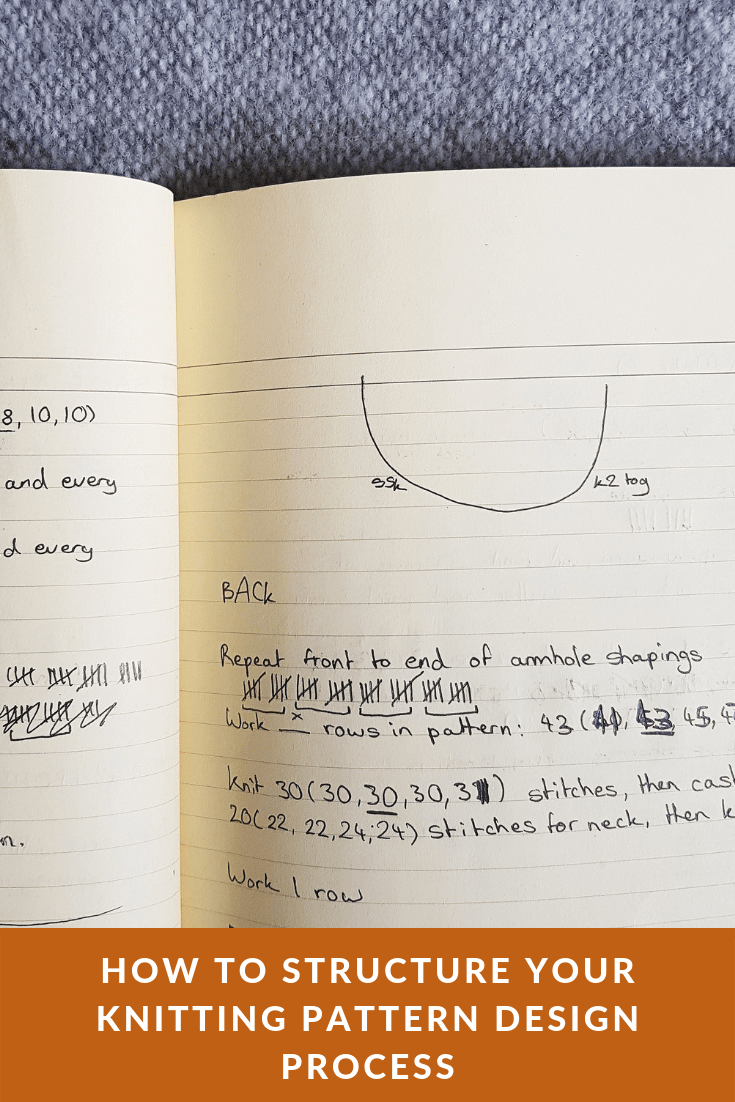 8, 10, 10)
and every
d every
n.
ssk
k2 tog
BACK
Repeat front to end of armhole shapings
Work x rows in pattern: 43 ( 45,
Knit 30 (30, 30, 30, 31) stitches, then cas
20 (22, 22, 24, 24) stitches for neck, then k
Work 1 row
HOW TO STRUCTURE YOUR
KNITTING PATTERN DESIGN
PROCESS